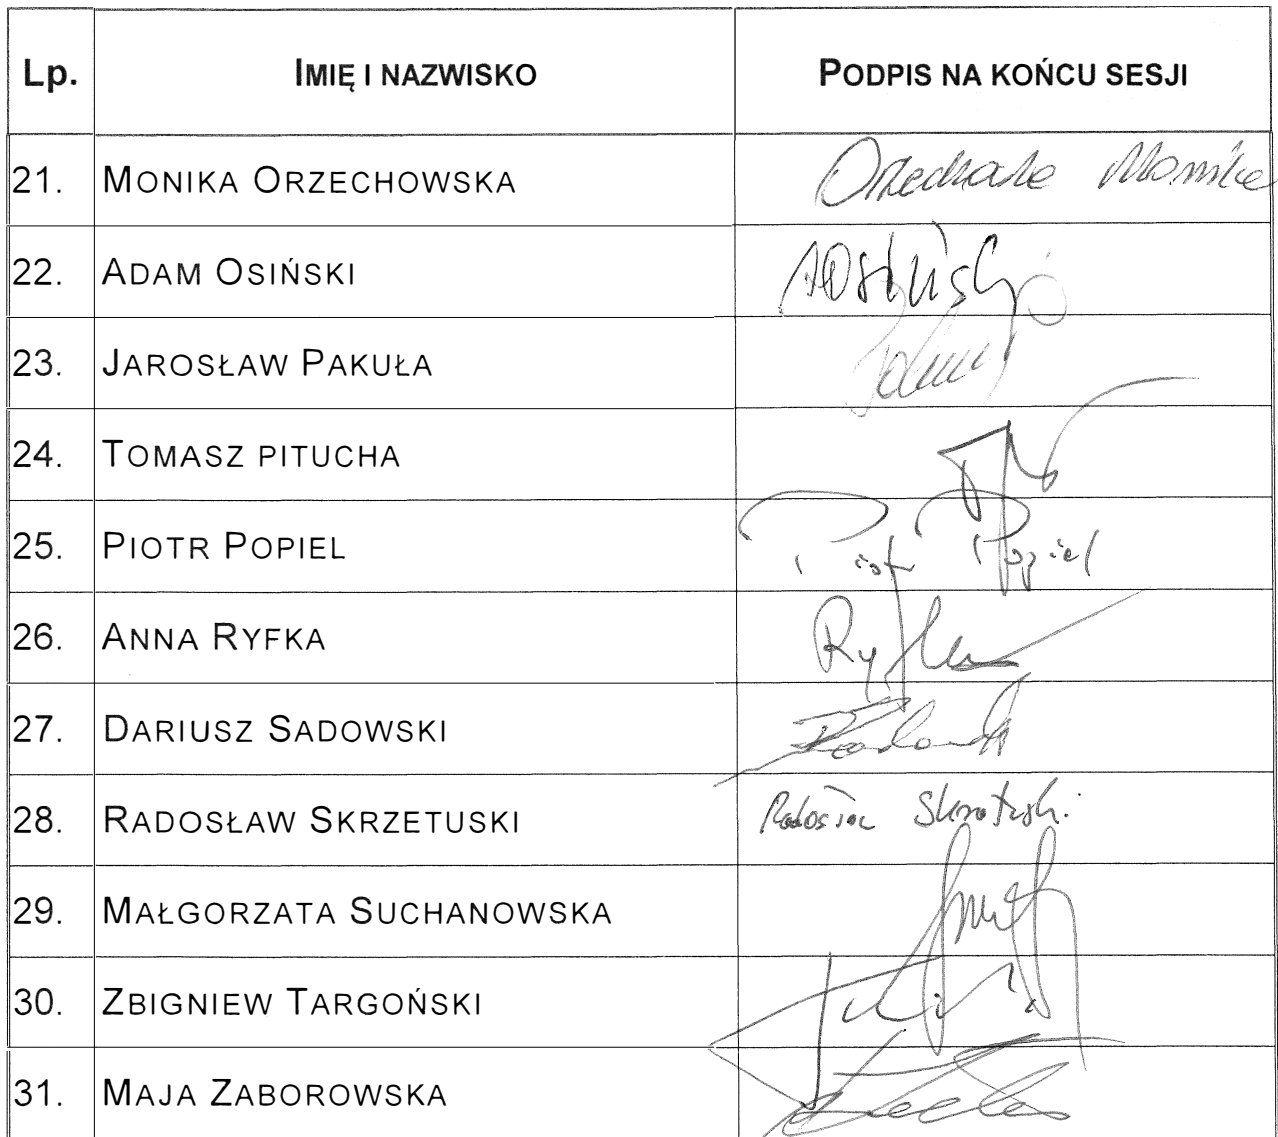 Lp. IMIĘ I NAZWISKO PODPIS NA KOŃCU SESJI
21. MONIKA ORZECHOWSKA Monika
22. ADAM OSIŃSKI AOsiński
23. JAROSŁAW PAKUŁA
24. TOMASZ PITUCHA
25. PIOTR POPIEL Piotr Popiel
26. ANNA RYFKA Ryfka
27. DARIUSZ SADOWSKI
28. RADOSŁAW SKRZETUSKI Radosław Skrzetuski
29. MAŁGORZATA SUCHANOWSKA
30. ZBIGNIEW TARGOŃSKI
31. MAJA ZABOROWSKA